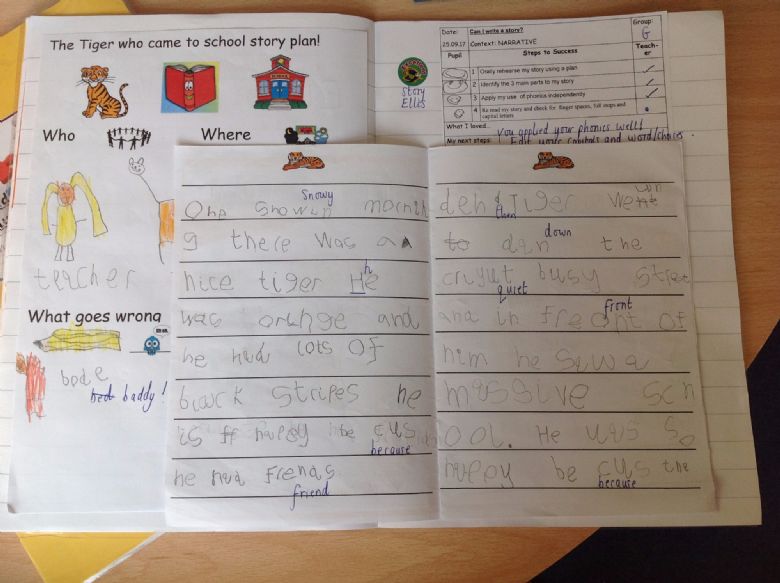 The Tiger who came to school story plan!
Who
Where
teacher
What goes wrong
bade
bad baddy!
Story
Ellis
Date:
Can I write a story?
Group:
G
25.09.17
Context: NARRATIVE
Pupil
Steps to Success
Teach-
er
1 Orally rehearse my story using a plan
2 Identify the 3 main parts to my story
3 Apply my use of phonics independently
4 Re read my story and check for finger spaces, full stops and
capital letters
What I loved...
You applied your phonics well!
My next steps
Edit your capitals and word/choices.
Snowy
One snowun mornin
g there was a
h
nice tiger He
was orunge and
he had lots of
black stripes he
is happy be cus
because
he had Friends
friend
den Tiger went
then
down
to dan the
criyut busy street
quiet
front
and in freont of
him he sawa
massive sch
ool. He was so
happy be cus the
because